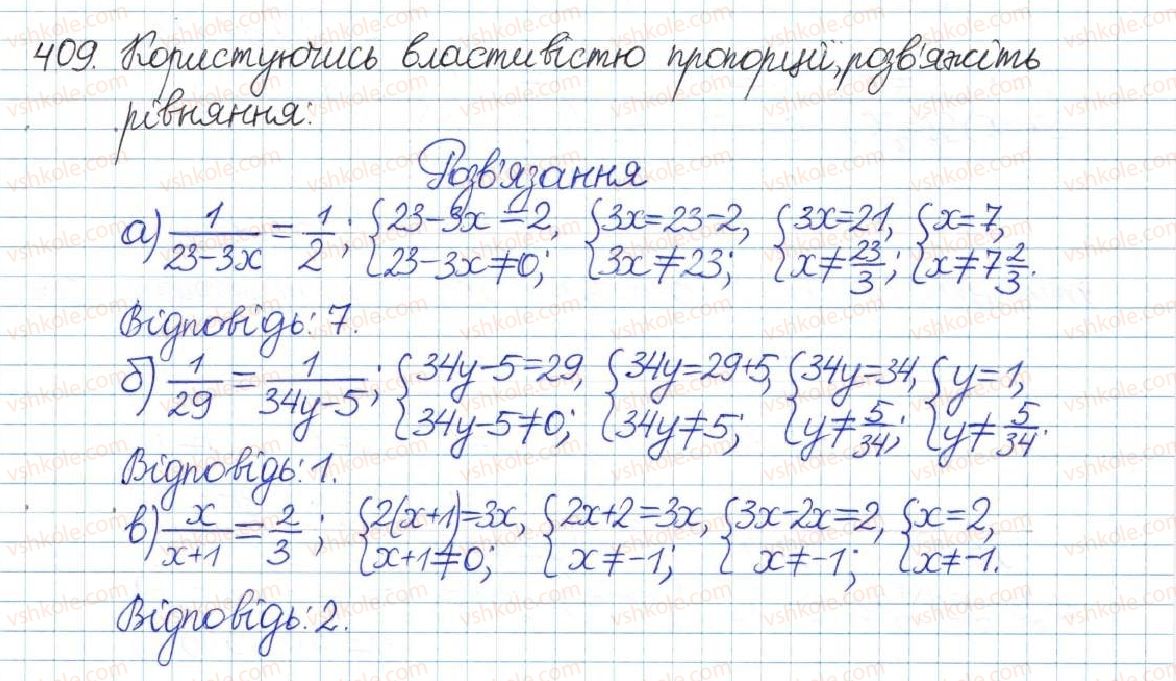 409. Користуючись властивістю пропорції, розв'яжіть
рівняння:
Розв'язання
а) 1/(23-3x) = 1/2; {23-3x=2, 23-3x≠0; {3x=23-2, 3x≠23; {3x=21, x≠23/3; {x=7, x≠7 2/3.
Відповідь: 7.
б) 1/29 = 1/(34y-5); {34y-5=29, 34y-5≠0; {34y=29+5, 34y≠5; {34y=34, y≠5/34; {y=1, y≠5/34.
Відповідь: 1.
в) x/(x+1) = 2/3; {2(x+1)=3x, x+1≠0; {2x+2=3x, x≠-1; {3x-2x=2, x≠-1; {x=2, x≠-1.
Відповідь: 2.
vshkole.com